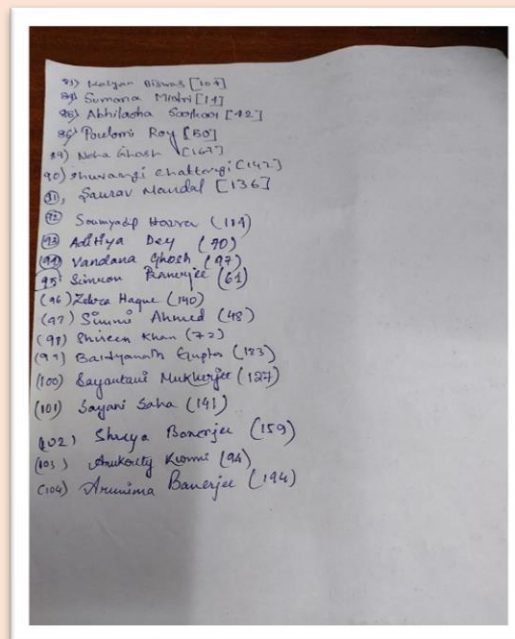 83) Kalyan Biswas [107]
84) Sumana Mistri [11]
85) Abhilasha Sarkar [12]
86) Poulomi Roy [50]
89) Neha Ghosh [167]
90) Shuvangi Chatterji [142]
91, Saurav Mandal [136]
92 Soumyadip Hazra (184)
93 Aditiya Dey (70)
94 Vandana Ghosh (97)
95 Simron Banerjee (61)
(96) Zebra Haque (140)
(97) Simmi Ahmed (48)
(98) Shireen Khan (72)
(99) Baidyanath Gupta (183)
(100) Sayantani Mukherjee (127)
(101) Sayani Saha (141)
(102) Shreya Banerjee (159)
(103) Kurmi (94)
(104) Arunima Banerjee (194)